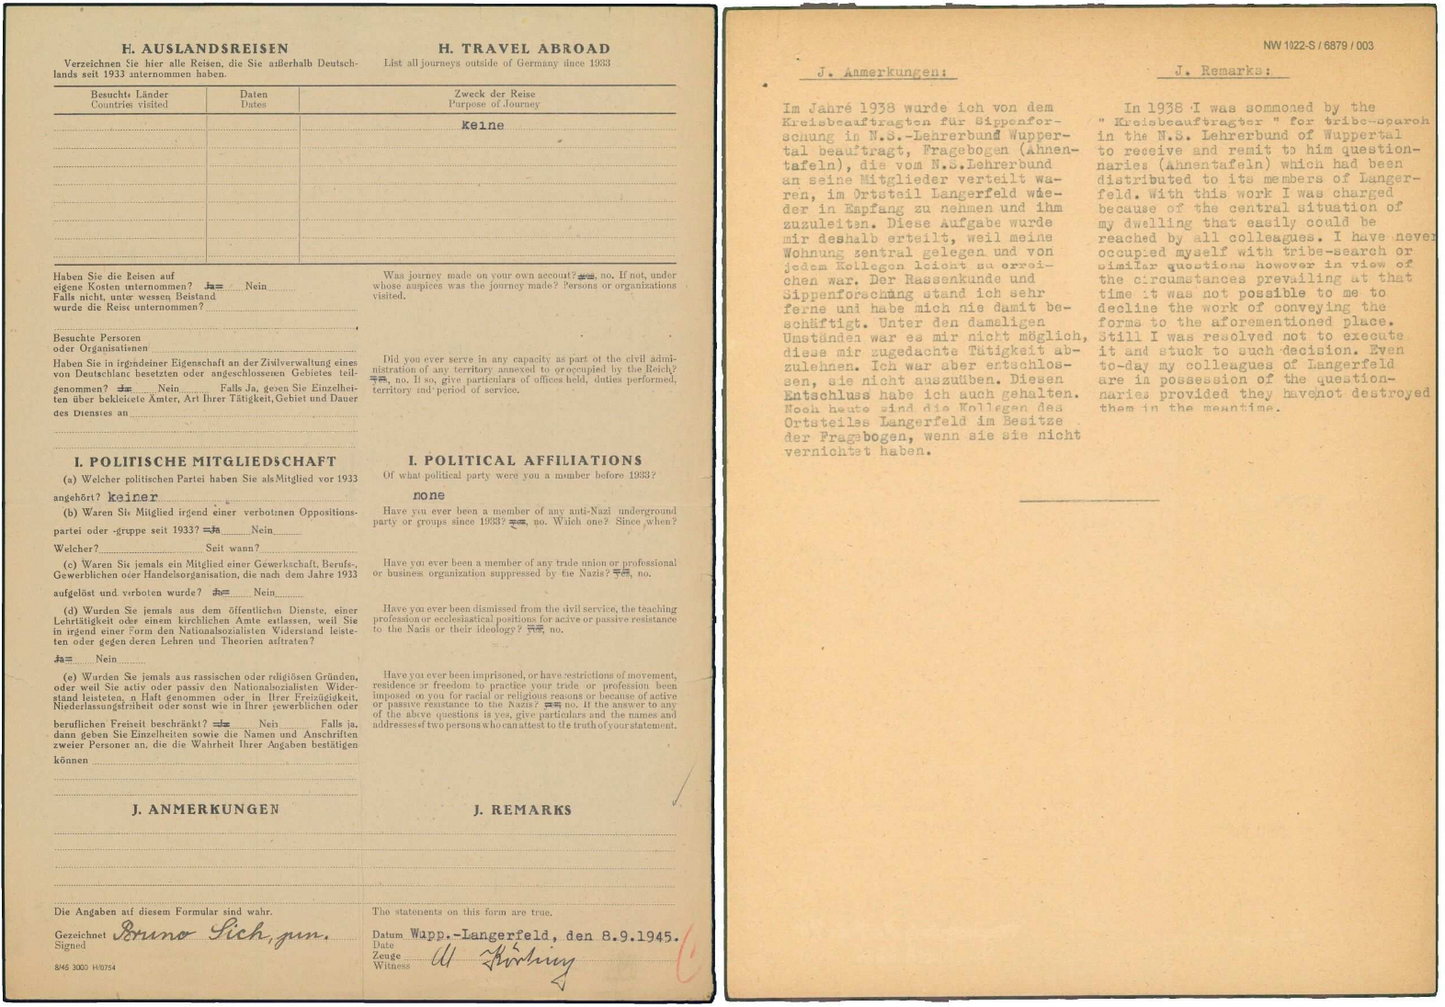 H. AUSLANDSREISEN
Verzeichnen Sie hier alle Reisen, die Sie außerhalb Deutsch-
lands seit 1933 unternommen haben.
H. TRAVEL ABROAD
List all journeys outside of Germany since 1933
Besuchte Länder
Countries visited
Daten
Dates
Zweck der Reise
Purpose of Journey
keine
Haben Sie die Reisen auf
eigene Kosten unternommen? Ja= Nein
Falls nicht, unter wessen Beistand
wurde die Reise unternommen?
Besuchte Personen
oder Organisationen
Haben Sie in irgendeiner Eigenschaft an der Zivilverwaltung eines
von Deutschland besetzten oder angeschlossenen Gebietes teil-
genommen? Ja= Nein Falls Ja, geben Sie Einzelhei-
ten über bekleidete Ämter, Art Ihrer Tätigkeit, Gebiet und Dauer
des Dienstes an
Was journey made on your own account? yes, no. If not, under
whose auspices was the journey made? Persons or organizations
visited.
Did you ever serve in any capacity as part of the civil admi-
nistration of any territory annexed to or occupied by the Reich?
yes, no. If so, give particulars of offices held, duties performed,
territory and period of service.
I. POLITISCHE MITGLIEDSCHAFT
(a) Welcher politischen Partei haben Sie als Mitglied vor 1933
angehört? keiner
(b) Waren Sie Mitglied irgend einer verbotenen Oppositions-
partei oder -gruppe seit 1933? =Ja Nein
Welcher? Seit wann?
(c) Waren Sie jemals ein Mitglied einer Gewerkschaft, Berufs-,
Gewerblichen oder Handelsorganisation, die nach dem Jahre 1933
aufgelöst und verboten wurde? Ja= Nein
(d) Wurden Sie jemals aus dem öffentlichen Dienste, einer
Lehrtätigkeit oder einem kirchlichen Amte entlassen, weil Sie
in irgend einer Form den Nationalsozialisten Widerstand leiste-
ten oder gegen deren Lehren und Theorien auftraten?
Ja= Nein
(e) Wurden Sie jemals aus rassischen oder religiösen Gründen,
oder weil Sie activ oder passiv den Nationalsozialisten Wider-
stand leisteten, in Haft genommen oder in Ihrer Freizügigkeit,
Niederlassungsfreiheit oder sonst wie in Ihrer gewerblichen oder
beruflichen Freiheit beschränkt? =Ja Nein Falls ja,
dann geben Sie Einzelheiten sowie die Namen und Anschriften
zweier Personen an, die die Wahrheit Ihrer Angaben bestätigen
können
I. POLITICAL AFFILIATIONS
Of what political party were you a member before 1933?
none
Have you ever been a member of any anti-Nazi underground
party or groups since 1933? yes, no. Which one? Since when?
Have you ever been a member of any trade union or professional
or business organization suppressed by the Nazis? yes, no.
Have you ever been dismissed from the civil service, the teaching
profession or ecclesiastical positions for active or passive resistance
to the Nazis or their ideology? yes, no.
Have you ever been imprisoned, or have restrictions of movement,
residence or freedom to practice your trade or profession been
imposed on you for racial or religious reasons or because of active
or passive resistance to the Nazis? yes no. If the answer to any
of the above questions is yes, give particulars and the names and
addresses of two persons who can attest to the truth of your statement.
J. ANMERKUNGEN
J. REMARKS
Die Angaben auf diesem Formular sind wahr.
Gezeichnet Bruno Sich, jun.
Signed
8/45 3000 H/0754
The statements on this form are true.
Datum Wupp.-Langerfeld, den 8.9.1945.
Date
Zeuge
Witness
NW 1022-S / 6879 / 003
J. Anmerkungen:
Im Jahré 1938 wurde ich von dem
Kreisbeauftragten für Sippenfor-
schung in N.S.-Lehrerbund Wupper-
tal beauftragt, Fragebogen (Ahnen-
tafeln), die vom N.S.Lehrerbund
an seine Mitglieder verteilt wa-
ren, im Ortsteil Langerfeld wie-
der in Empfang zu nehmen und ihm
zuzuleiten. Diese Aufgabe wurde
mir deshalb erteilt, weil meine
Wohnung zentral gelegen und von
jedem Kollegen leicht zu errei-
chen war. Der Rassenkunde und
Sippenforschung stand ich sehr
ferne und habe mich nie damit be-
schäftigt. Unter den damaligen
Umständen war es mir nicht möglich,
diese mir zugedachte Tätigkeit ab-
zulehnen. Ich war aber entschlos-
sen, sie nicht auszuüben. Diesen
Entschluss habe ich auch gehalten.
Noch heute sind die Kollegen des
Ortsteiles Langerfeld im Besitze
der Fragebogen, wenn sie sie nicht
vernichtet haben.
J. Remarks:
In 1938 I was sommoned by the
" Kreisbeauftragter " for tribe-search
in the N.S. Lehrerbund of Wuppertal
to receive and remit to him question-
naries (Ahnentafeln) which had been
distributed to its members of Langer-
feld. With this work I was charged
because of the central situation of
my dwelling that easily could be
reached by all colleagues. I have never
occupied myself with tribe-search or
similar questions however in view of
the circumstances prevailing at that
time it was not possible to me to
decline the work of conveying the
forms to the aforementioned place.
Still I was resolved not to execute
it and stuck to such decision. Even
to-day my colleagues of Langerfeld
are in possession of the question-
naries provided they have not destroyed
them in the meantime.